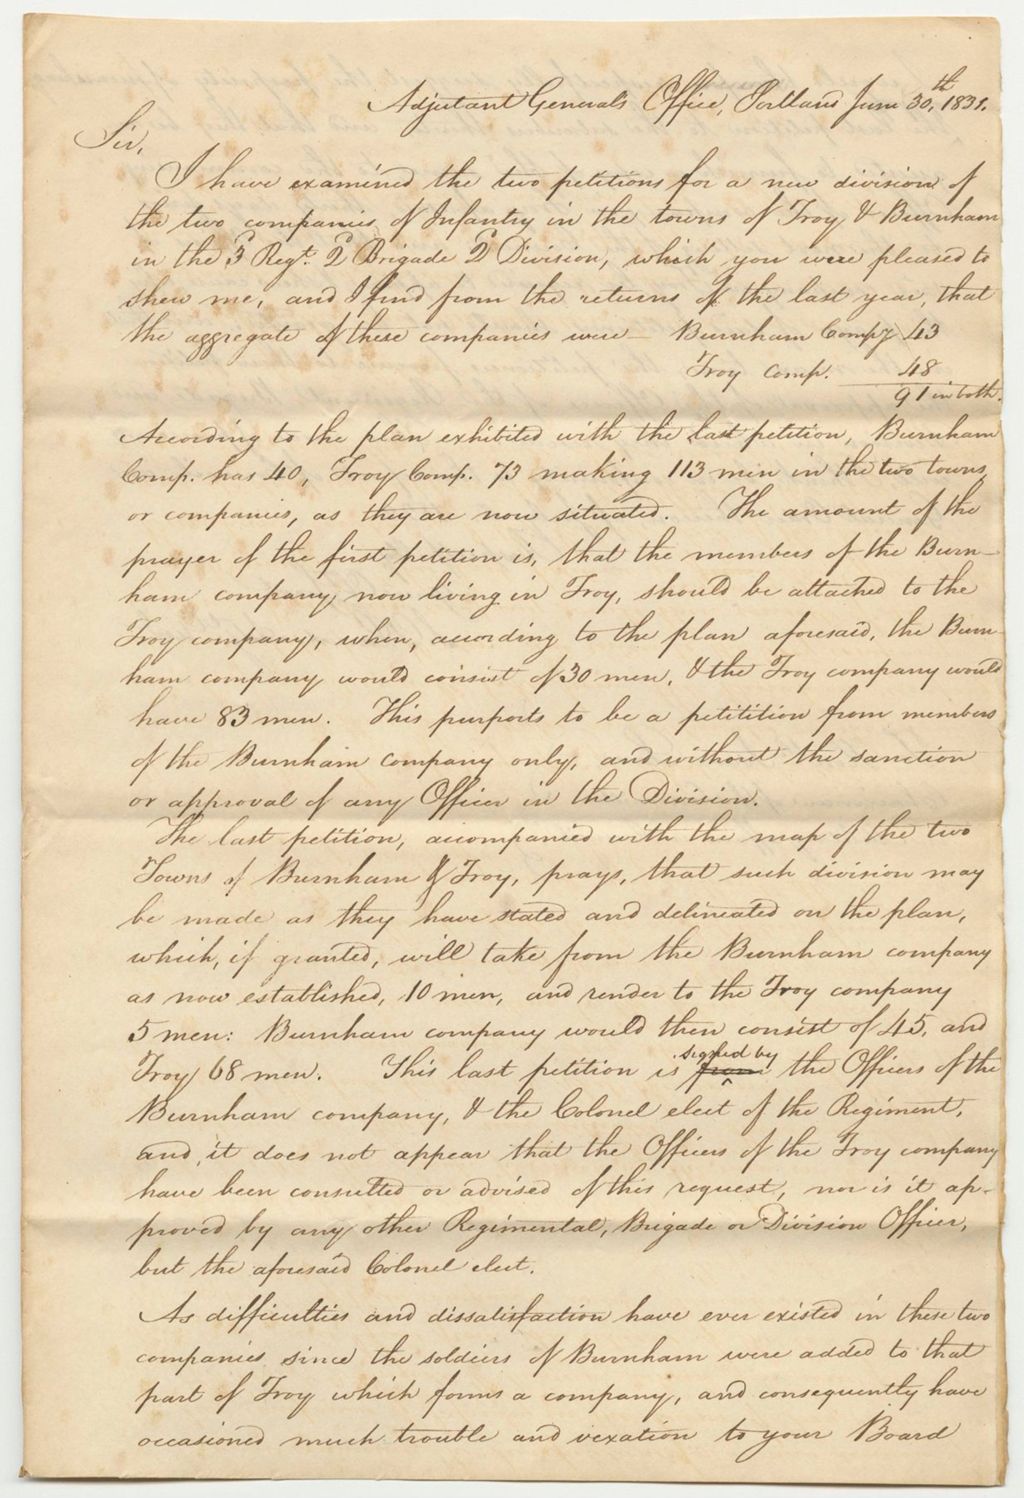 Adjutant General's Office, Portland June 30.th 1831.
Sir,
I have examined the two petitions for a new division of
the two companies of Infantry in the towns of Troy & Burnham
in the 3d Regt. 2d Brigade 2d Division, which you were pleased to
shew me, and I find from the returns of the last year, that
the aggregate of these companies were — Burnham Compy 43
Troy Comp. 48
91 in both.
According to the plan exhibited with the last petition, Burnham
Comp. has 40, Troy Comp. 73 making 113 men in the two towns,
or companies, as they are now situated. The amount of the
prayer of the first petition is, that the members of the Burn-
ham company now living in Troy, should be attached to the
Troy company, when, according to the plan aforesaid, the Burn-
ham company would consist of 30 men, & the Troy company would
have 83 men. This purports to be a petitition from members
of the Burnham company only, and without the sanction
or approval of any Officer in the Division.
The last petition, accompanied with the map of the two
Towns of Burnham & Troy, prays, that such division may
be made as they have stated and delineated on the plan,
which, if granted, will take from the Burnham company
as now established, 10 men, and render to the Troy company
5 men: Burnham company would then consist of 45, and
signed by
Troy 68 men. This last petition is from the Officers of the
Burnham company, & the Colonel elect of the Regiment,
and, it does not appear that the Officers of the Troy company
have been consulted or advised of this request, nor is it ap-
proved by any other Regimental, Brigade or Division Officer,
but the aforesaid Colonel elect.
As difficulties and dissatisfaction have ever existed in these two
companies since the soldiers of Burnham were added to that
part of Troy which forms a company, and consequently have
occasioned much trouble and vexation to your Board